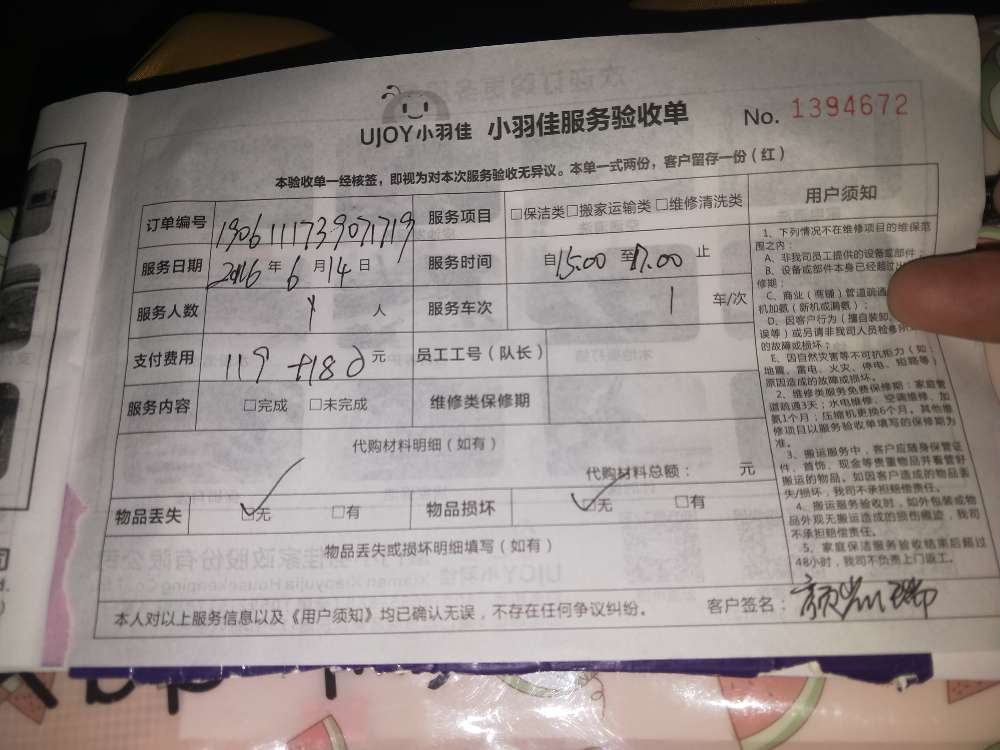 UJOY小羽佳 小羽佳服务验收单 No. 1394672
本验收单一经核签，即视为对本次服务验收无异议。本单一式两份，客户留存一份（红）
订单编号 1906111739071719 服务项目 □保洁类□搬家运输类 □维修清洗类
服务日期 2016年6月14日 服务时间 自15.00至17.00止
服务人数 1 人 服务车次 1 车/次
支付费用 119 +180 元 员工工号（队长）
服务内容 □完成 □未完成 维修类保修期
代购材料明细（如有）
代购材料总额： 元
物品丢失 □无 □有 物品损坏 □无 □有
物品丢失或损坏明细填写（如有）
本人对以上服务信息以及《用户须知》均已确认无误，不存在任何争议纠纷。 客户签名：
用户须知
1、下列情况不在维修项目的维保范
围之内：
A、非我司员工提供的设备或部件；
B、设备或部件本身已经超过
修期；
C、商业（商铺）管道疏通
机加氨（新机或漏氨）；
D、因客户行为（擅自装卸
误等）或另请非我司人员检修
的故障或损坏；
E、因自然灾害等不可抗拒力（如：
地震、雷电、火灾、停电、短路等）
原因造成的故障或损坏。
2、维修类服务免费保修期：家庭管
道疏通3天；水电维修、空调维修、加
氨1个月；压缩机更换6个月。其他维
修项目以服务验收单填写的保修期为
准。
3、搬运服务中，客户应随身保管证
件、首饰、现金等贵重物品并看管好
搬运的物品。如因客户造成的物品丢
失/损坏，我司不承担赔偿责任。
4、搬运服务验收时，如外包装或物
品外观无搬运造成的损伤痕迹，我司
不承担赔偿责任。
5、家庭保洁服务验收结束后超过
48小时，我司不负责上门返工。